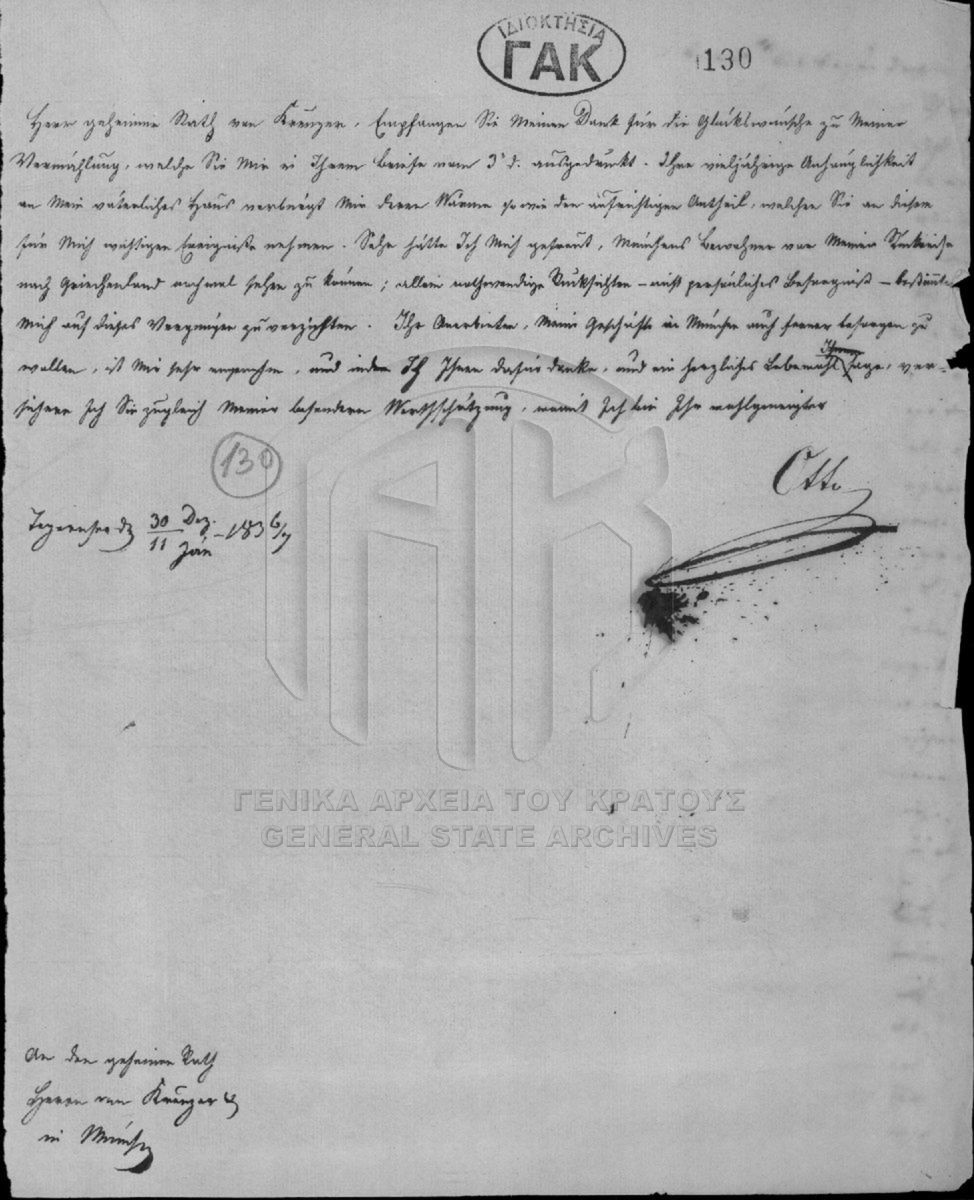 ΙΔΙΟΚΤΗΣΙΑ
ΓΑΚ
130
Herr geheimer Rath von Kreuzer. Empfangen Sie Meinen Dank für die Glückswünsche zu Meiner
Vermählung, welche Sie Mir in Ihrem Briefe vom 3 d. ausgedrückt. Ihre vieljährige Anhänglichkeit
an Mein väterliches Haus verbürgt Mir deren Wärme so wie den aufrichtigen Antheil, welchen Sie an diesem
für Mich wichtigen Ereigniße nehmen. Sehr hätte Ich Mich gefreut, Münchens Bewohner vor Meiner Rückreise
nach Griechenland nochmal sehen zu können; allein nothwendige Rücksichten – nicht persönliches Besorgniß – bestimmten
Mich auf dieses Vergnügen zu verzichten. Ihr Anerbieten, Meine Geschäfte in München auch ferner besorgen zu
wollen, ist Mir sehr angenehm, und indem Ich Ihnen dafür danke, und ein herzliches Lebewohl Ihnen sage, ver-
sichere Ich Sie zugleich Meiner besondern Werthschätzung, womit Ich bin Ihr wohlgeneigter
Otto
130
Tegernsee d. 30 Dez. / 11 Jän – 1836/7
ΓΕΝΙΚΑ ΑΡΧΕΙΑ ΤΟΥ ΚΡΑΤΟΥΣ
GENERAL STATE ARCHIVES
An den geheimen Rath
Herrn von Kreuzer
in München